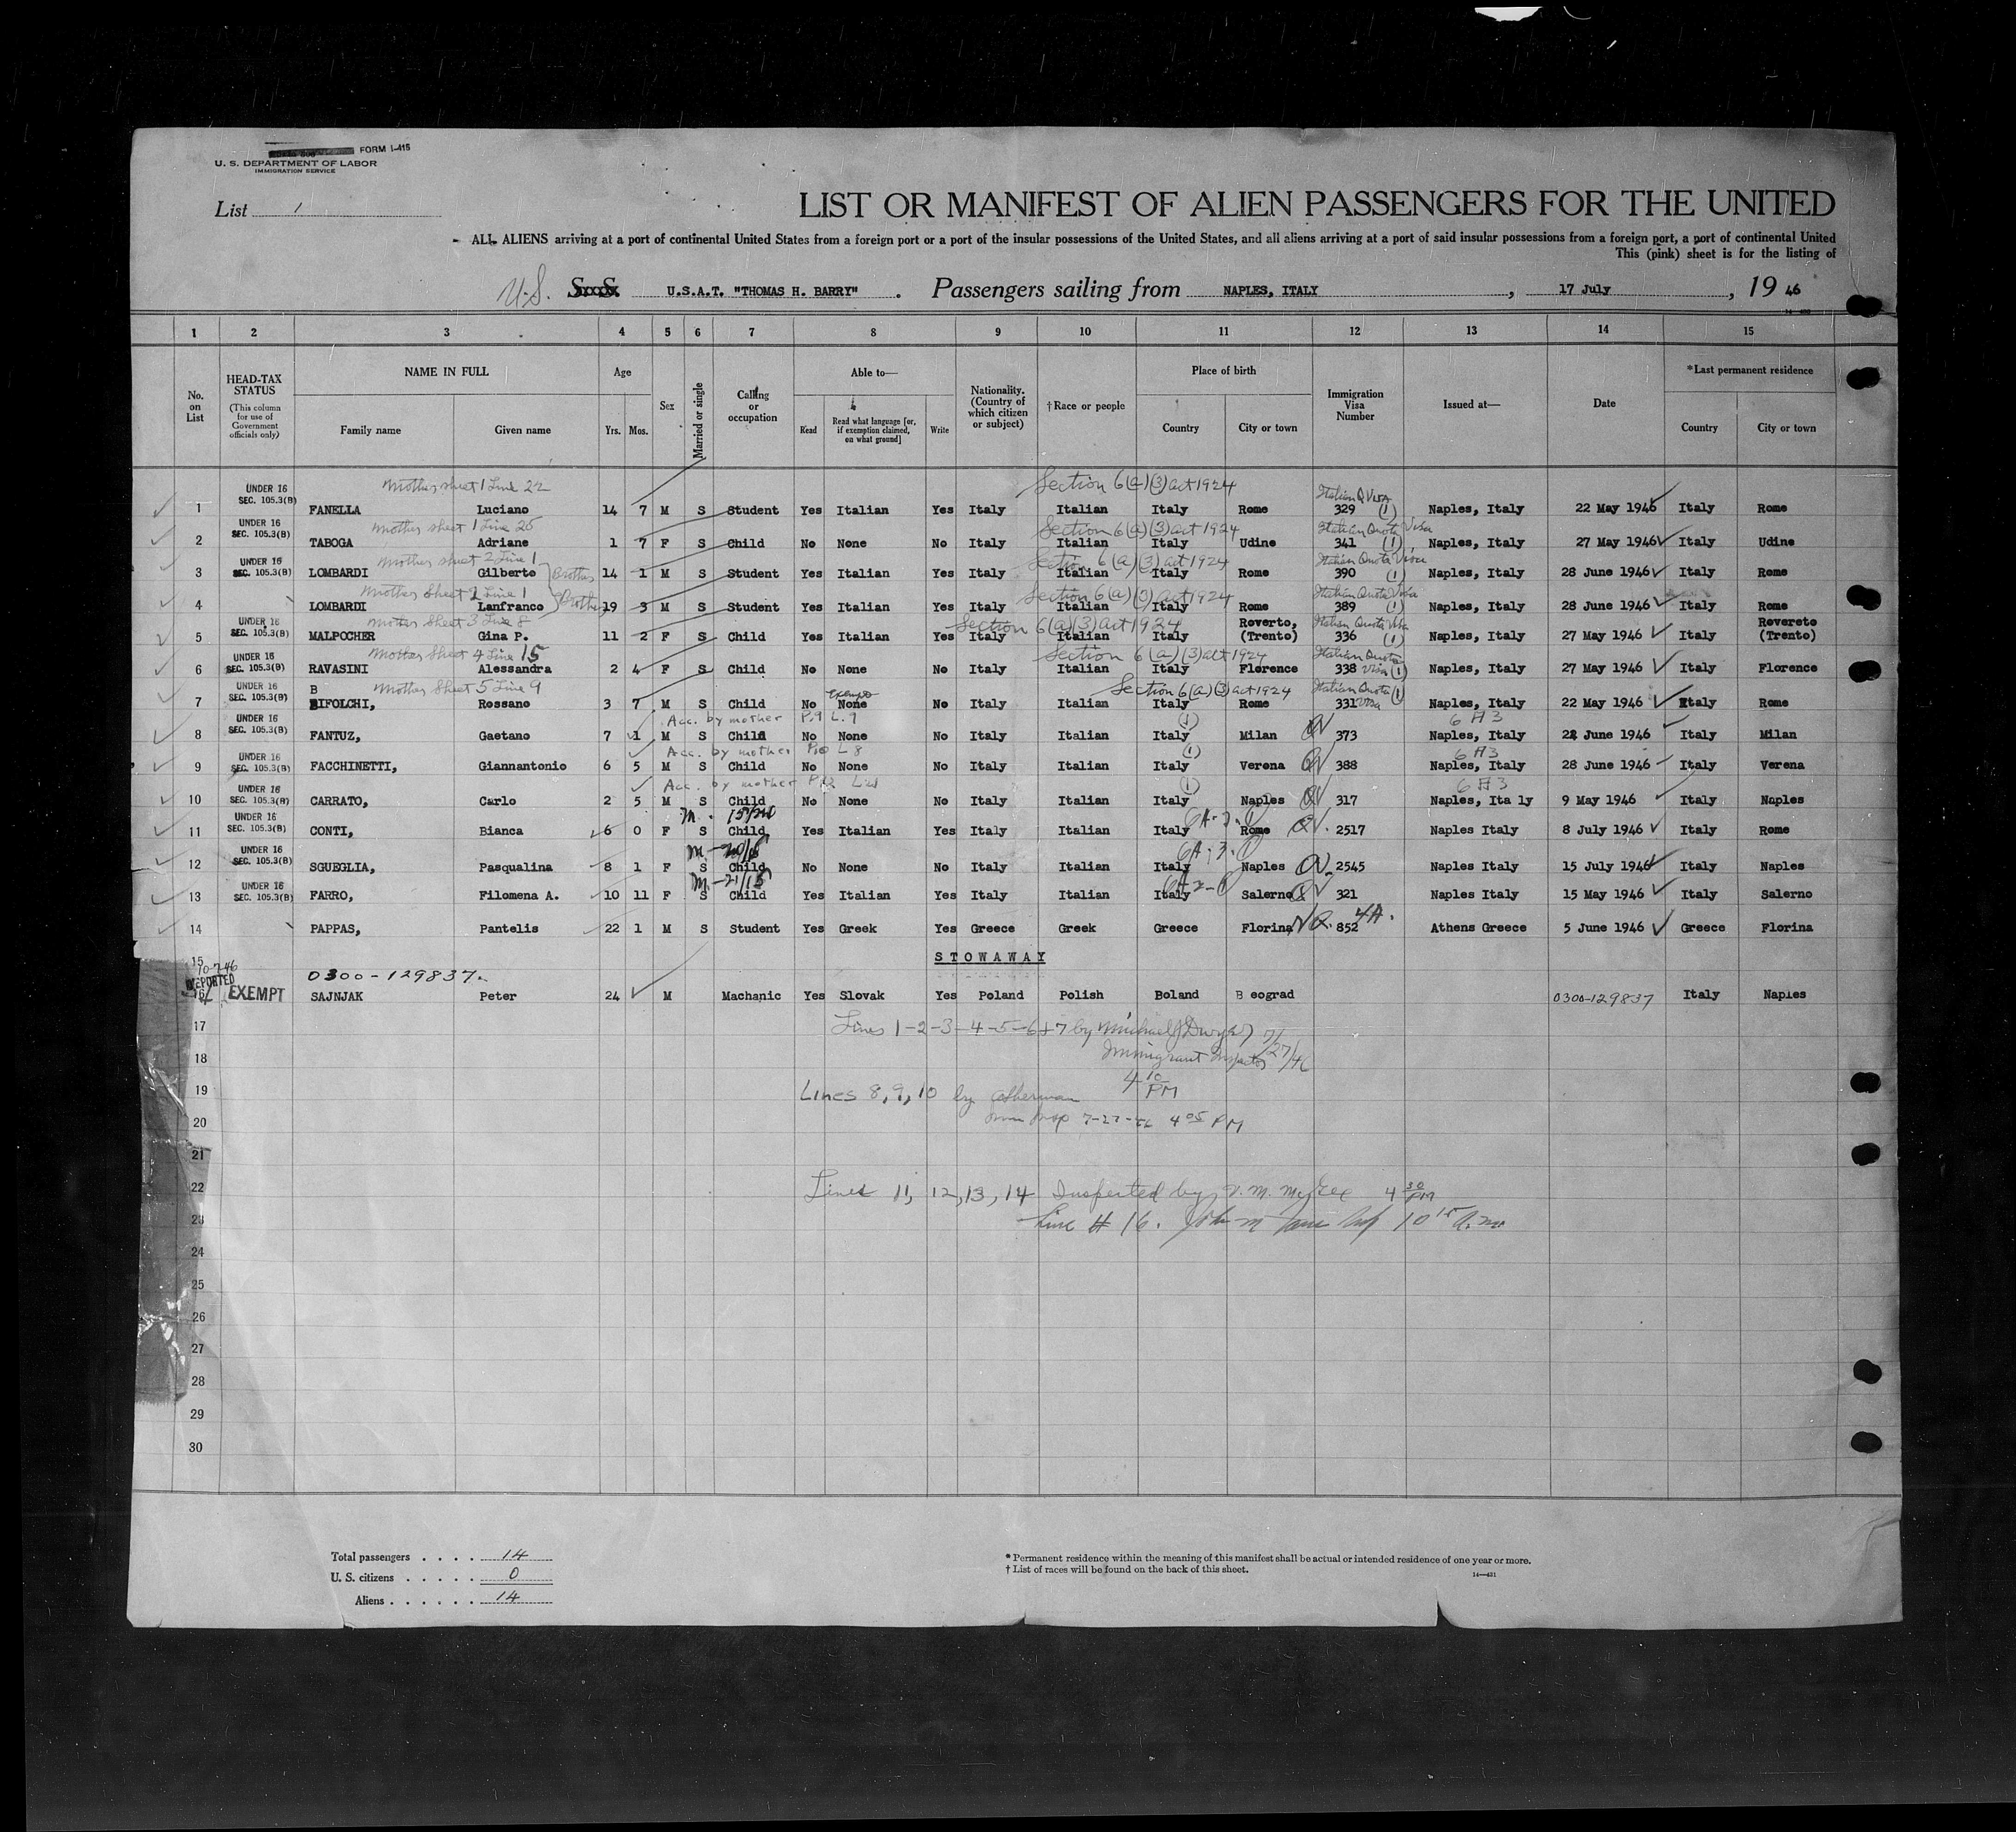 FORM I-415
U. S. DEPARTMENT OF LABOR
IMMIGRATION SERVICE
List 1
LIST OR MANIFEST OF ALIEN PASSENGERS FOR THE UNITED
ALL ALIENS arriving at a port of continental United States from a foreign port or a port of the insular possessions of the United States, and all aliens arriving at a port of said insular possessions from a foreign port, a port of continental United
This (pink) sheet is for the listing of
U.S. S.S. U.S.A.T. "THOMAS H. BARRY" . Passengers sailing from NAPLES, ITALY , 17 July , 19 46
1 2 3 4 5 6 7 8 9 10 11 12 13 14 15
No. on List HEAD-TAX STATUS (This column for use of Government officials only) NAME IN FULL Family name Given name Age Yrs. Mos. Sex Married or single Calling or occupation Able to— Read Read what language [or, if exemption claimed, on what ground] Write Nationality. (Country of which citizen or subject) †Race or people Place of birth Country City or town Immigration Visa Number Issued at— Date *Last permanent residence Country City or town
UNDER 16 SEC. 105.3(B) Mother sheet 1 Line 22 Section 6(a)(3) act 1924 Italian Q Visa
1 FANELLA Luciano 14 7 M S Student Yes Italian Yes Italy Italian Italy Rome 329 (1) Naples, Italy 22 May 1946 Italy Rome
UNDER 16 SEC. 105.3(B) Mother sheet 1 Line 25 Section 6(a)(3) act 1924 Italian Quota Visa
2 TABOGA Adriane 1 7 F S Child No None No Italy Italian Italy Udine 341 (1) Naples, Italy 27 May 1946 Italy Udine
UNDER 16 SEC. 105.3(B) Mother sheet 2 Line 1 Section 6(a)(3) act 1924 Italian Quota Visa
3 LOMBARDI Gilberto Brother 14 1 M S Student Yes Italian Yes Italy Italian Italy Rome 390 (1) Naples, Italy 28 June 1946 Italy Rome
Mother Sheet 2 Line 1 Section 6(a)(3) act 1924 Italian Quota Visa
4 LOMBARDI Lanfranco Brother 19 3 M S Student Yes Italian Yes Italy Italian Italy Rome 389 (1) Naples, Italy 28 June 1946 Italy Rome
UNDER 16 SEC. 105.3(B) Mother Sheet 3 Line 8 Section 6(a)(3) act 1924 Roverto, Italian Quota Visa Rovereto
5 MALPOCHER Gina P. 11 2 F S Child Yes Italian Yes Italy Italian Italy (Trento) 336 (1) Naples, Italy 27 May 1946 Italy (Trento)
UNDER 16 SEC. 105.3(B) Mother Sheet 4 Line 15 Section 6(a)(3) act 1924 Italian Quota
6 RAVASINI Alessandra 2 4 F S Child No None No Italy Italian Italy Florence 338 Visa (1) Naples, Italy 27 May 1946 Italy Florence
UNDER 16 SEC. 105.3(B) B Mother Sheet 5 Line 9 exempt Section 6(a)(3) act 1924 Italian Quota (1)
7 BIFOLCHI, Rossano 3 7 M S Child No None No Italy Italian Italy Rome 331 visa Naples, Italy 22 May 1946 Italy Rome
UNDER 16 SEC. 105.3(B) Acc. by mother P.9 L.9 (1) 6 A 3
8 FANTUZ, Gaetano 7 1 M S Child No None No Italy Italian Italy Milan QV 373 Naples, Italy 22 June 1946 Italy Milan
UNDER 16 SEC. 105.3(B) Acc. by mother P10 L 8 (1) 6 A 3
9 FACCHINETTI, Giannantonio 6 5 M S Child No None No Italy Italian Italy Verona QV 388 Naples, Italy 28 June 1946 Italy Verena
UNDER 16 SEC. 105.3(B) Acc. by mother (1) 6 A 3
10 CARRATO, Carlo 2 5 M S Child No None No Italy Italian Italy Naples QV 317 Naples, Ita ly 9 May 1946 Italy Naples
UNDER 16 SEC. 105.3(B) M. - 15/20
11 CONTI, Bianca 6 0 F S Child Yes Italian Yes Italy Italian Italy Rome QV. 2517 Naples Italy 8 July 1946 Italy Rome
UNDER 16 SEC. 105.3(B) 6A-3-(1)
12 SGUEGLIA, Pasqualina 8 1 F S Child No None No Italy Italian Italy Naples QV 2545 Naples Italy 15 July 1946 Italy Naples
UNDER 16 SEC. 105.3(B) M.-21/13
13 FARRO, Filomena A. 10 11 F S Child Yes Italian Yes Italy Italian Italy Salerno QV 321 Naples Italy 15 May 1946 Italy Salerno
14 PAPPAS, Pantelis 22 1 M S Student Yes Greek Yes Greece Greek Greece Florina 852 4A. Athens Greece 5 June 1946 Greece Florina
15 STOWAWAY
10-7-46 DEPORTED 0300-129837.
16 EXEMPT SAJNJAK Peter 24 M Machanic Yes Slovak Yes Poland Polish Boland B eograd 0300-129837 Italy Naples
17 Lines 1-2-3-4-5-6+7 by Michael J Dwyer 7/27/46
18 Immigrant Inspector
4 10 PM
19 Lines 8, 9, 10 by
20 Imm Insp 7-27-46 4 05 PM
21
22 Lines 11, 12, 13, 14 Inspected by 4 30 PM
23 Line # 16. 10 15 A.m.
24
25
26
27
28
29
30
Total passengers . . . . 14
U. S. citizens . . . . . 0
Aliens . . . . . . 14
* Permanent residence within the meaning of this manifest shall be actual or intended residence of one year or more.
† List of races will be found on the back of this sheet.
14—431